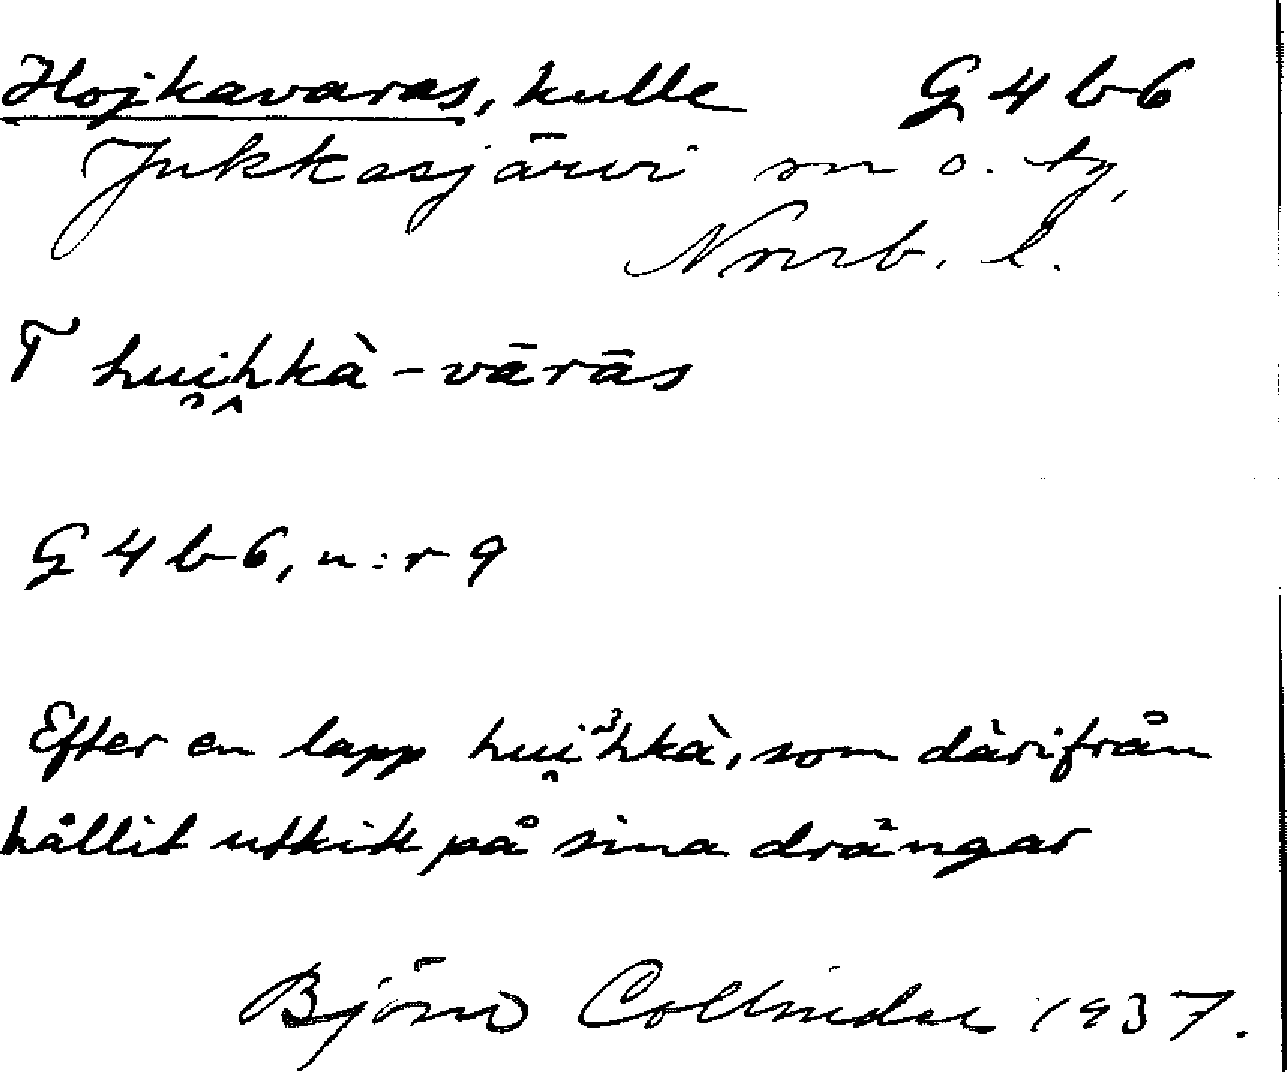 Hojkavaras, kulle G 4 b 6
Jukkasjärvi sn o. tg,
Norrb. l.
T hui̯hkà-vārās
G 4 b 6, n:r 9
Efter en lapp hui̯hkà, som därifrån
hållit utkik på sina drängar
Björn Collinder 1937.